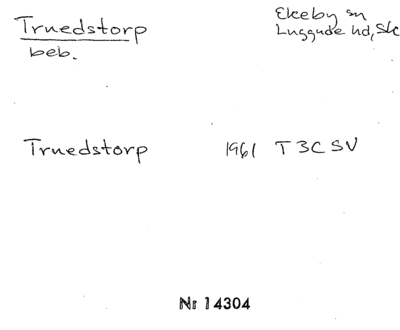 Truedstorp
beb.
Ekeby sn
Luggude hd, Sk
Truedstorp 1961 T 3C SV
Nr 14304